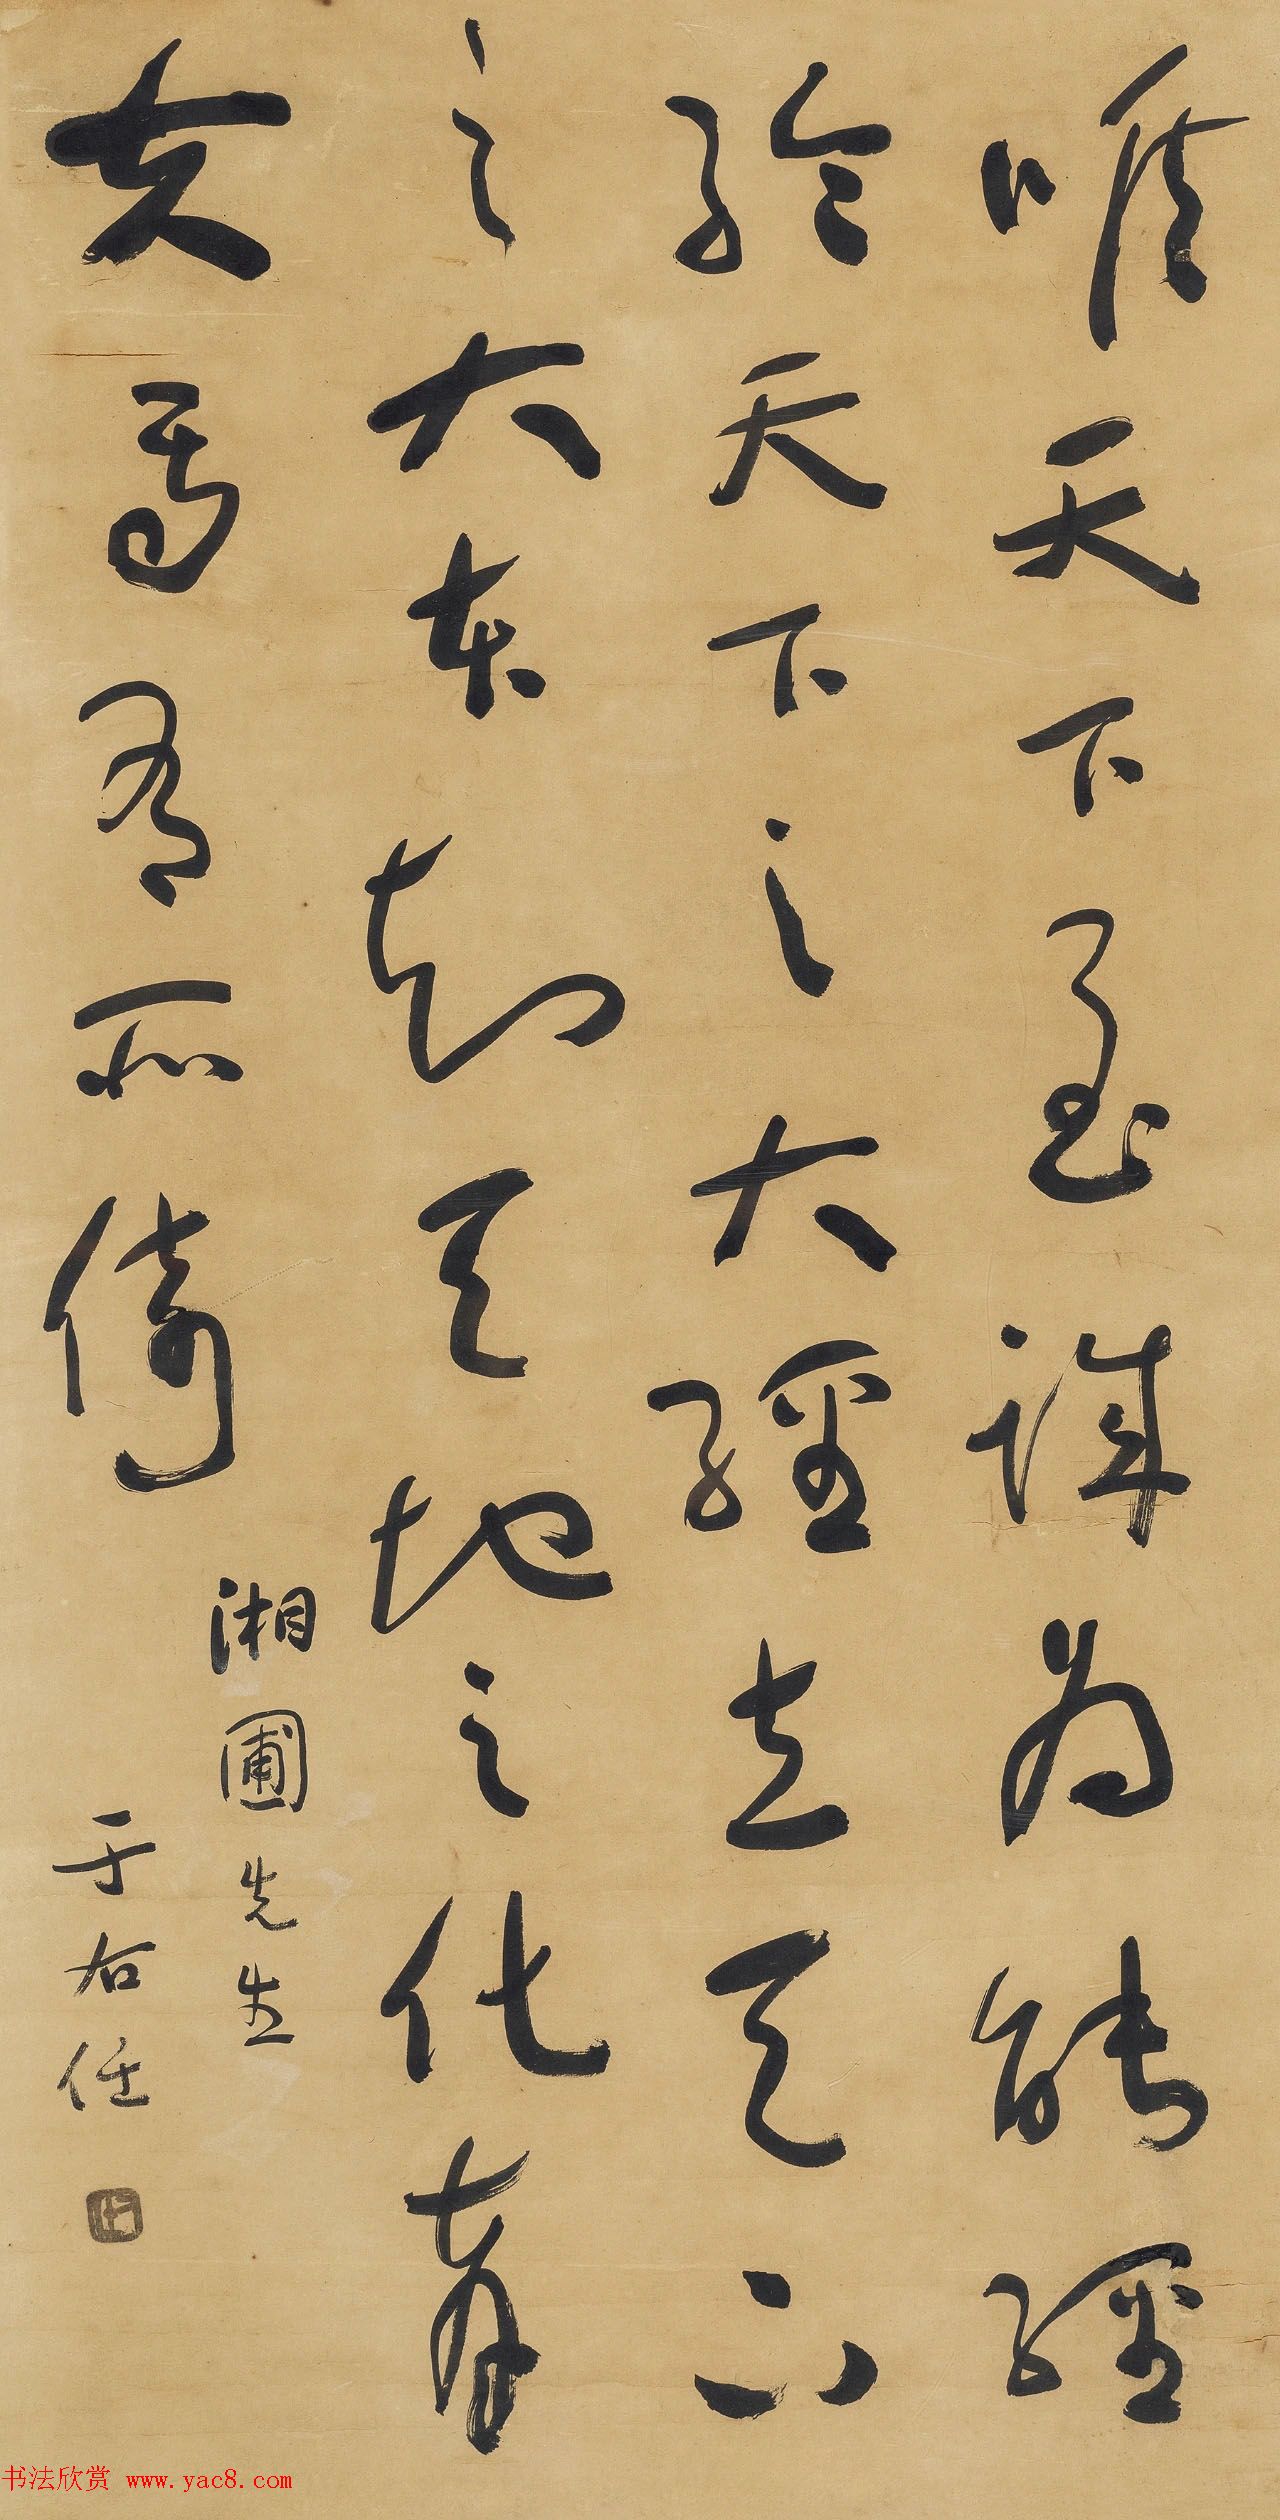 唯天下至誠為能經
綸天下之大經立天下
之大本知天地之化育
夫焉有所倚
湘圃先生
于右任
书法欣赏 www.yac8.com